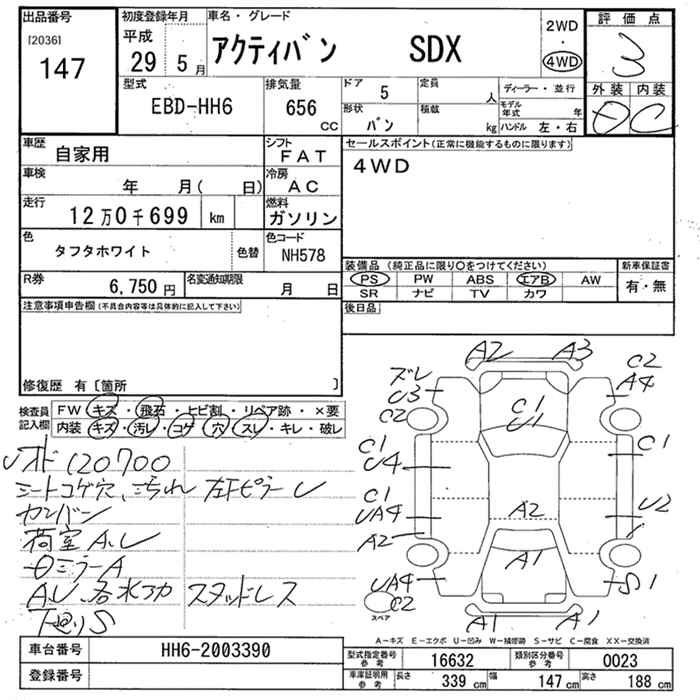 出品番号
[2036]
147
初度登録年月
平成
29 5月
車名・グレード
アクティバン SDX
2WD
・
4WD
評価点
3
外装 内装
D C
型式
EBD-HH6
排気量
656 CC
ドア 5
定員 人
形状 バン
積載 kg
ディーラー・並行
モデル年式 年
ハンドル 左・右
車歴
自家用
シフト
FAT
車検
年 月( 日)
冷房
AC
走行
12万0千699 km
燃料
ガソリン
色
タフタホワイト
色替
色コード
NH578
R券
6,750円
名変通知期限
月 日
セールスポイント(正常に機能するものに限ります)
4WD
装備品 (純正品に限り○をつけてください)
PS PW ABS エアB AW
SR ナビ TV カワ
新車保証書
有・無
後日品
注意事項申告欄(不具合内容等は具体的に記入して下さい)
修復歴 有〔箇所 〕
検査員
記入欄
FW キズ・飛石・ヒビ割・リペア跡・×要
内装 キズ・汚レ・コゲ・穴・スレ・キレ・破レ
120700
シートコゲ穴、汚れ 左下ピラーU
カンバン
荷室A.U
ミラーA
A.U、各水アカ スタッドレス
下廻りS
A2 A3
ズレ
U3
C2
C2
A4
C1
U1
C1
U4
C1
C1
UA4
A2
A2
U2
A1
UA4
C2
S1
A1 A1
スペア
A-キズ E-エクボ U-凹み W-補修跡 S-サビ C-腐食 XX-交換済
車台番号
HH6-2003390
登録番号
型式指定番号
参考
16632
類別区分番号
参考
0023
車庫証明用
参考
長さ 339 cm
幅 147 cm
高さ 188 cm